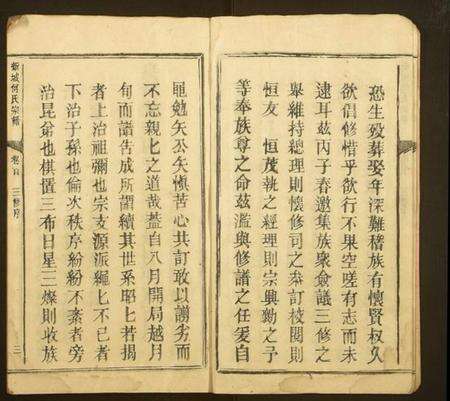 恐生歿葬娶年深難稽族有懷賢叔久
欲倡修惜乎欲行不果空嗟有志而未
逮耳茲丙子春邀集族眾僉議三修之
舉維持總理則懷修司之叅訂校閱則
恒友 恒茂執之經理則宗興勷之予
等奉族尊之命茲濫與修譜之任爰自
黽勉矢公矢慎苦心共訂敢以謭劣而
不忘親七之道哉蓋自八月開局越月
旬而譜告成所謂續其世系昭七若揭
者上治祖禰也宗支源派繩七不已者
下治子孫也倫次秩序紛紛不紊者旁
治昆弟也棋置三布日星三燦則收族
何氏宗譜
卷首
三修序
三